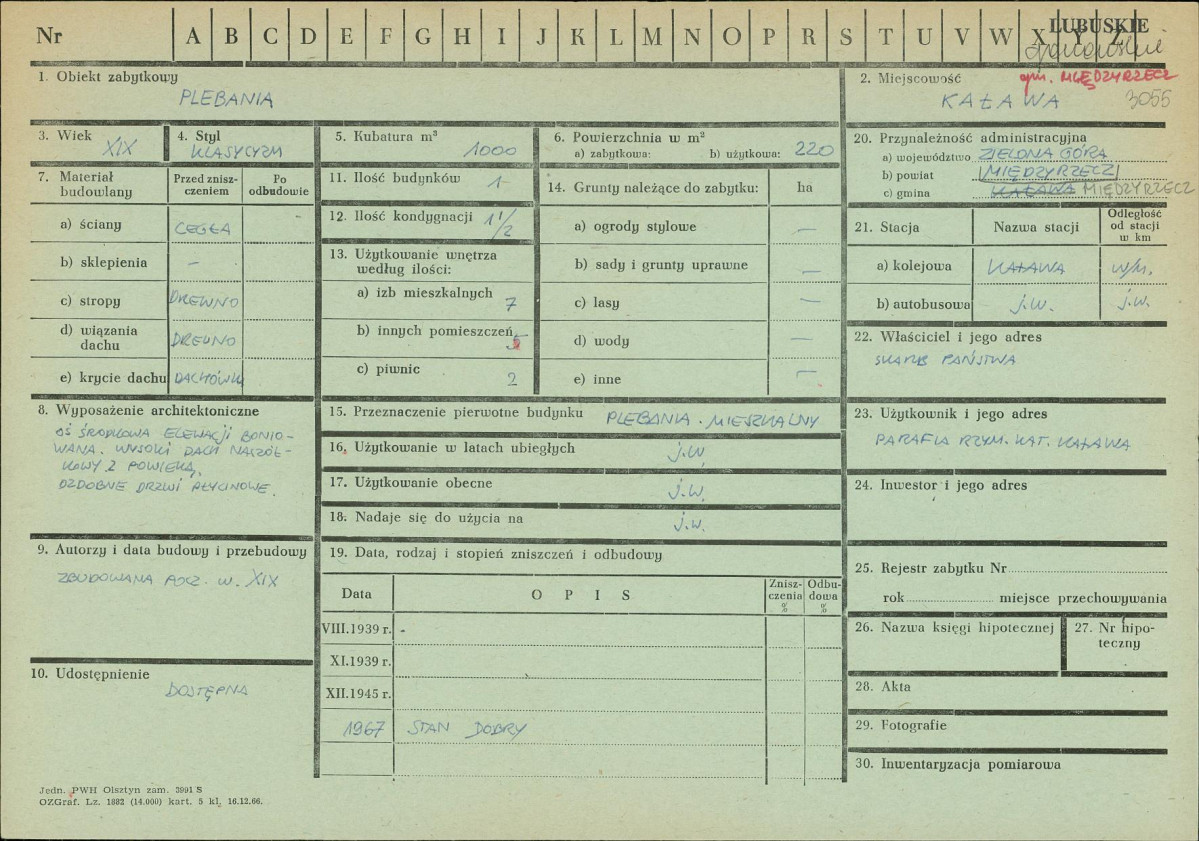 Nr A B C D E F G H I J K L M N O P R S T U V W X Y Z
LUBUSKIE
gm. MIĘDZYRZECZ
1. Obiekt zabytkowy
PLEBANIA
2. Miejscowość
KAŁAWA 3055
3. Wiek
XIX
4. Styl
KLASYCYZM
5. Kubatura m³
1000
6. Powierzchnia w m²
a) zabytkowa: b) użytkowa: 220
7. Materiał budowlany
Przed znisz-
czeniem
Po
odbudowie
a) ściany CEGŁA
b) sklepienia —
c) stropy DREWNO
d) wiązania
dachu DREWNO
e) krycie dachu DACHÓWK
8. Wyposażenie architektoniczne
OŚ ŚRODKOWA ELEWACJI BONIO-
WANA. WYSOKI DACH NACZÓŁ-
KOWY Z POWIEKĄ,
OZDOBNE DRZWI PŁYCINOWE.
9. Autorzy i data budowy i przebudowy
ZBUDOWANA POCZ. W. XIX
10. Udostępnienie
DOSTĘPNA
11. Ilość budynków 1
12. Ilość kondygnacji 1 1/2
13. Użytkowanie wnętrza
według ilości:
a) izb mieszkalnych 7
b) innych pomieszczeń 5
c) piwnic 2
14. Grunty należące do zabytku: ha
a) ogrody stylowe —
b) sady i grunty uprawne —
c) lasy —
d) wody —
e) inne —
15. Przeznaczenie pierwotne budynku PLEBANIA. MIESZKALNY
16. Użytkowanie w latach ubiegłych j.w.
17. Użytkowanie obecne j.w.
18. Nadaje się do użycia na j.w.
19. Data, rodzaj i stopień zniszczeń i odbudowy
Data O P I S Znisz-
czenia
% Odbu-
dowa
%
VIII.1939 r. -
XI.1939 r.
XII.1945 r.
1967 STAN DOBRY
20. Przynależność administracyjna
a) województwo ZIELONA GÓRA
b) powiat MIĘDZYRZECZ
c) gmina KAŁAWA MIĘDZYRZECZ
21. Stacja Nazwa stacji Odległość
od stacji
w km
a) kolejowa KAŁAWA w/m.
b) autobusowa j.w. j.w.
22. Właściciel i jego adres
SKARB PAŃSTWA
23. Użytkownik i jego adres
PARAFIA RZYM. KAT. KAŁAWA
24. Inwestor i jego adres
25. Rejestr zabytku Nr
rok miejsce przechowywania
26. Nazwa księgi hipotecznej
27. Nr hipo-
teczny
28. Akta
29. Fotografie
30. Inwentaryzacja pomiarowa
Jedn. PWH Olsztyn zam. 3991 S
OZGraf. Lz. 1882 (14.000) kart. 5 kl. 16.12.66.